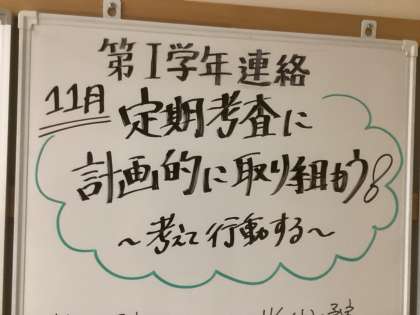 第1学年連絡
11月
定期考査に
計画的に取り組もう!
～考えて行動する～